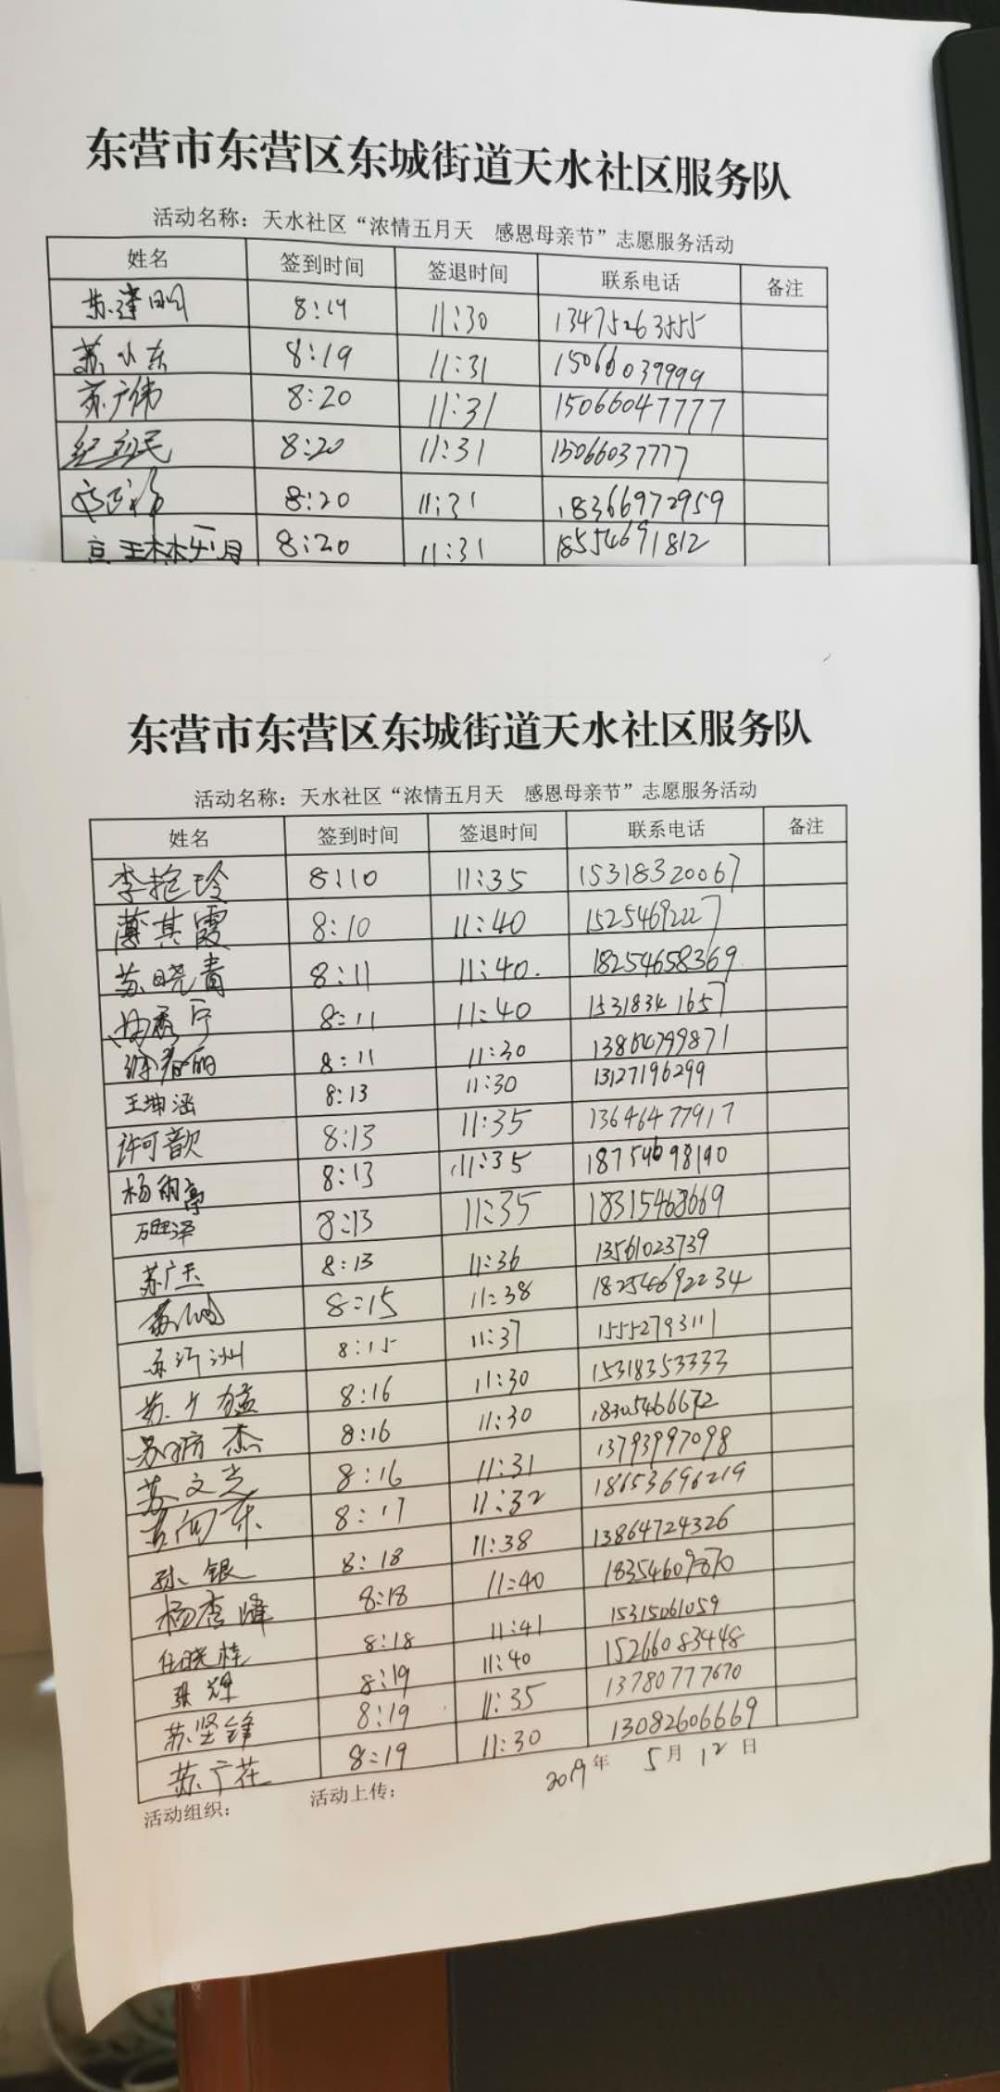 东营市东营区东城街道天水社区服务队
活动名称：天水社区“浓情五月天 感恩母亲节”志愿服务活动
姓名 签到时间 签退时间 联系电话 备注
苏建明 8:19 11:30 13475263555
苏小东 8:19 11:31 15066039999
苏广伟 8:20 11:31 15066047777
8:20 11:31 15066037777
8:20 11:31 18366972959
8:20 11:31 18554691812
东营市东营区东城街道天水社区服务队
活动名称：天水社区“浓情五月天 感恩母亲节”志愿服务活动
姓名 签到时间 签退时间 联系电话 备注
李艳玲 8:10 11:35 15318320067
薄其霞 8:10 11:40 15254692227
苏晓青 8:11 11:40. 18254658369
8:11 11:40 15318341657
徐春丽 8:11 11:30
王坤涵 8:13 11:30 13127196299
许可歆 8:13 11:35 13646477917
杨雨亭 8:13 11:35 18754698190
8:13 11:35 18315468669
苏广玉 8:13 11:36 13561023739
8:15 11:38 18254692234
8:15 11:37 15552793111
苏广猛 8:16 11:30 15318353333
8:16 11:30 18305466672
苏文光 8:16 11:31 13793997098
8:17 11:32 18653696219
孙银 8:18 11:38 13864724326
杨秀峰 8:18 11:40 18354609870
任晓桂 8:18 11:41 15315061059
张辉 8:19 11:40 15266083448
苏坚锋 8:19 11:35 13780777670
苏广花 8:19 11:30 13082606669
活动组织： 活动上传： 2019年 5月 12日